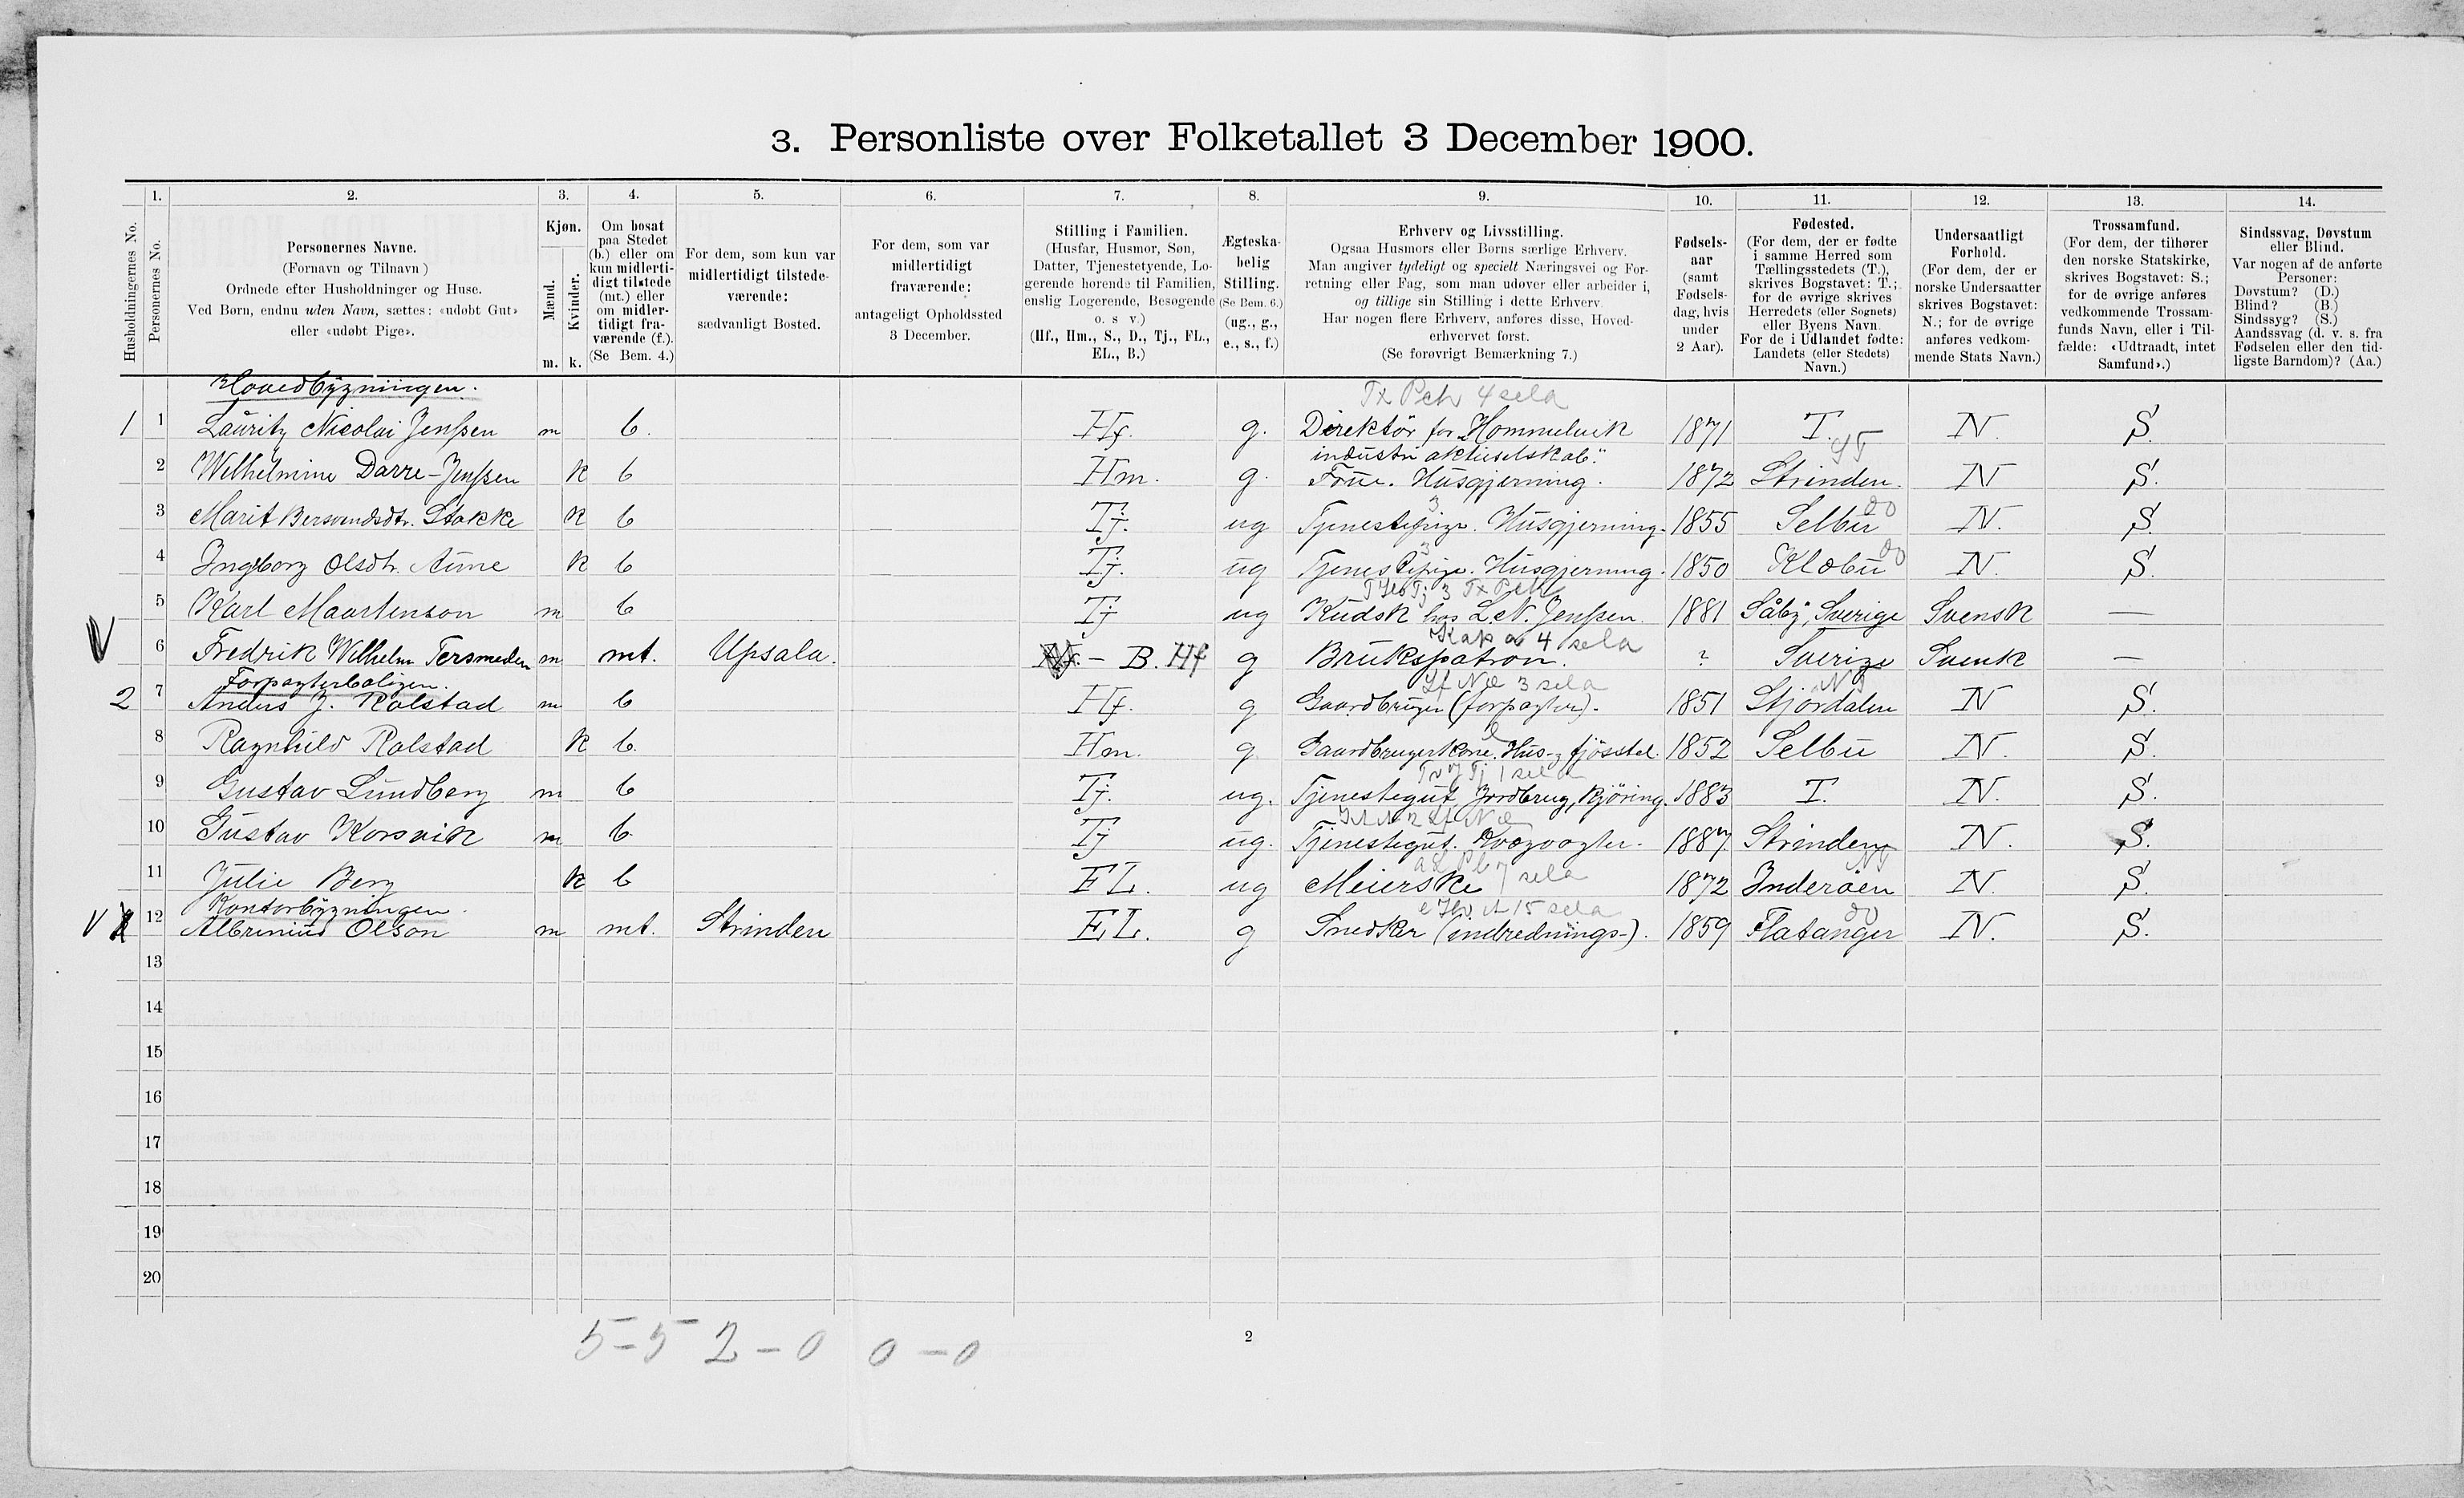 3. Personliste over Folketallet 3 December 1900.
Husholdningernes No.
1. Personernes No.
2. Personernes Navne.
(Fornavn og Tilnavn)
Ordnede efter Husholdninger og Huse.
Ved Børn, endnu uden Navn, sættes: «udøbt Gut»
eller «udøbt Pige».
3. Kjøn.
Mænd. Kvinder.
m. k.
4. Om bosat
paa Stedet
(b.) eller om
kun midlerti-
digt tilstede
(mt.) eller
om midler-
tidigt fra-
værende (f.).
(Se Bem. 4.)
5. For dem, som kun var
midlertidigt tilstede-
værende:
sædvanligt Bosted.
6. For dem, som var
midlertidigt
fraværende:
antageligt Opholdssted
3 December.
7. Stilling i Familien.
(Husfar, Husmor, Søn,
Datter, Tjenestetyende, Lo-
gerende hørende til Familien,
enslig Logerende, Besøgende
o. s v.)
(Hf., Hm., S., D., Tj., FL.,
EL., B.)
8. Ægteska-
belig
Stilling.
(Se Bem. 6.)
(ug., g.,
e., s., f.)
9. Erhverv og Livsstilling.
Ogsaa Husmors eller Børns særlige Erhverv.
Man angiver tydeligt og specielt Næringsvei og For-
retning eller Fag, som man udøver eller arbeider i,
og tillige sin Stilling i dette Erhverv.
Har nogen flere Erhverv, anføres disse, Hoved-
erhvervet først.
(Se forøvrigt Bemærkning 7.)
10. Fødsels-
aar
(samt
Fødsels-
dag, hvis
under
2 Aar).
11. Fødested.
(For dem, der er fødte
i samme Herred som
Tællingsstedets (T.),
skrives Bogstavet: T.;
for de øvrige skrives
Herredets (eller Sognets)
eller Byens Navn.
For de i Udlandet fødte:
Landets (eller Stedets)
Navn.)
12. Undersaatligt
Forhold.
(For dem, der er
norske Undersaatter
skrives Bogstavet:
N.; for de øvrige
anføres vedkom-
mende Stats Navn.)
13. Trossamfund.
(For dem, der tilhører
den norske Statskirke,
skrives Bogstavet: S.;
for de øvrige anføres
vedkommende Trossam-
funds Navn, eller i Til-
fælde: «Udtraadt, intet
Samfund».)
14. Sindssvag, Døvstum
eller Blind.
Var nogen af de anførte
Personer:
Døvstum? (D.)
Blind? (B.)
Sindssyg? (S.)
Aandssvag (d. v. s. fra
Fødselen eller den tid-
ligste Barndom)? (Aa.)
Hovedbygningen. Tx Pch 4 sela
1 1 Lauritz Nicolai Jenssen m b. Hf. g. Direktör for Hommelvik 1871 T. N. S.
industri aktieselskab"
2 Wilhelmine Darre-Jenssen k b Hm. g. Frue. Husgjerning. 1872 Strinden. ST N S.
3 Marit Bersvendsdtr. Stokke k b Tj. ug Tjenestepige. 3 Husgjerning. 1855 Selbu do N. S.
4 Ingborg Olsdtr. Aune k b Tj. ug Tjenestepige. 3 Husgjerning. 1850 Klæbu do N. S.
5 Karl Maartenson m b Tj ug Kudsk hos L. N. Jenssen. 1881 Såby, Sverige Svensk —
V 6 Fredrik Wilhelm Tersmeden m mt. Upsala. – B. Hf g Brukspatron. 4 sela ? Sverige Svensk —
Forpagterboligen. Lf Næ 3 sela
2 7 Anders J. Rolstad m b Hf. g Gaardbruger (forpagter). 1851 Stjördalen NT N S.
8 Ragnhild Rolstad k b. Hm. g Gaardbrugerkone. Hus- g fjösstel. 1852 Selbu N. S.
9 Gustav Lundberg m b Tj. ug. Tjenestegut, Jordbrug, kjöring. 1883 T. N. S.
10 Gustav Korsvik m b Tj ug. Tjenestegut. Kvægvogter. 1887 Strinden N. S.
11 Julie Berg k b FL. ug Meierske 7 sela 1872 Inderöen NT N. S.
Kontorbygningen. 15 sela
V 12 Albrinius Olson m mt. Strinden EL. g Snedker (indrednings-). 1859 Flatanger do N. S.
13
14
15
16
17
18
19
20
5-5 2-0 0-0
2